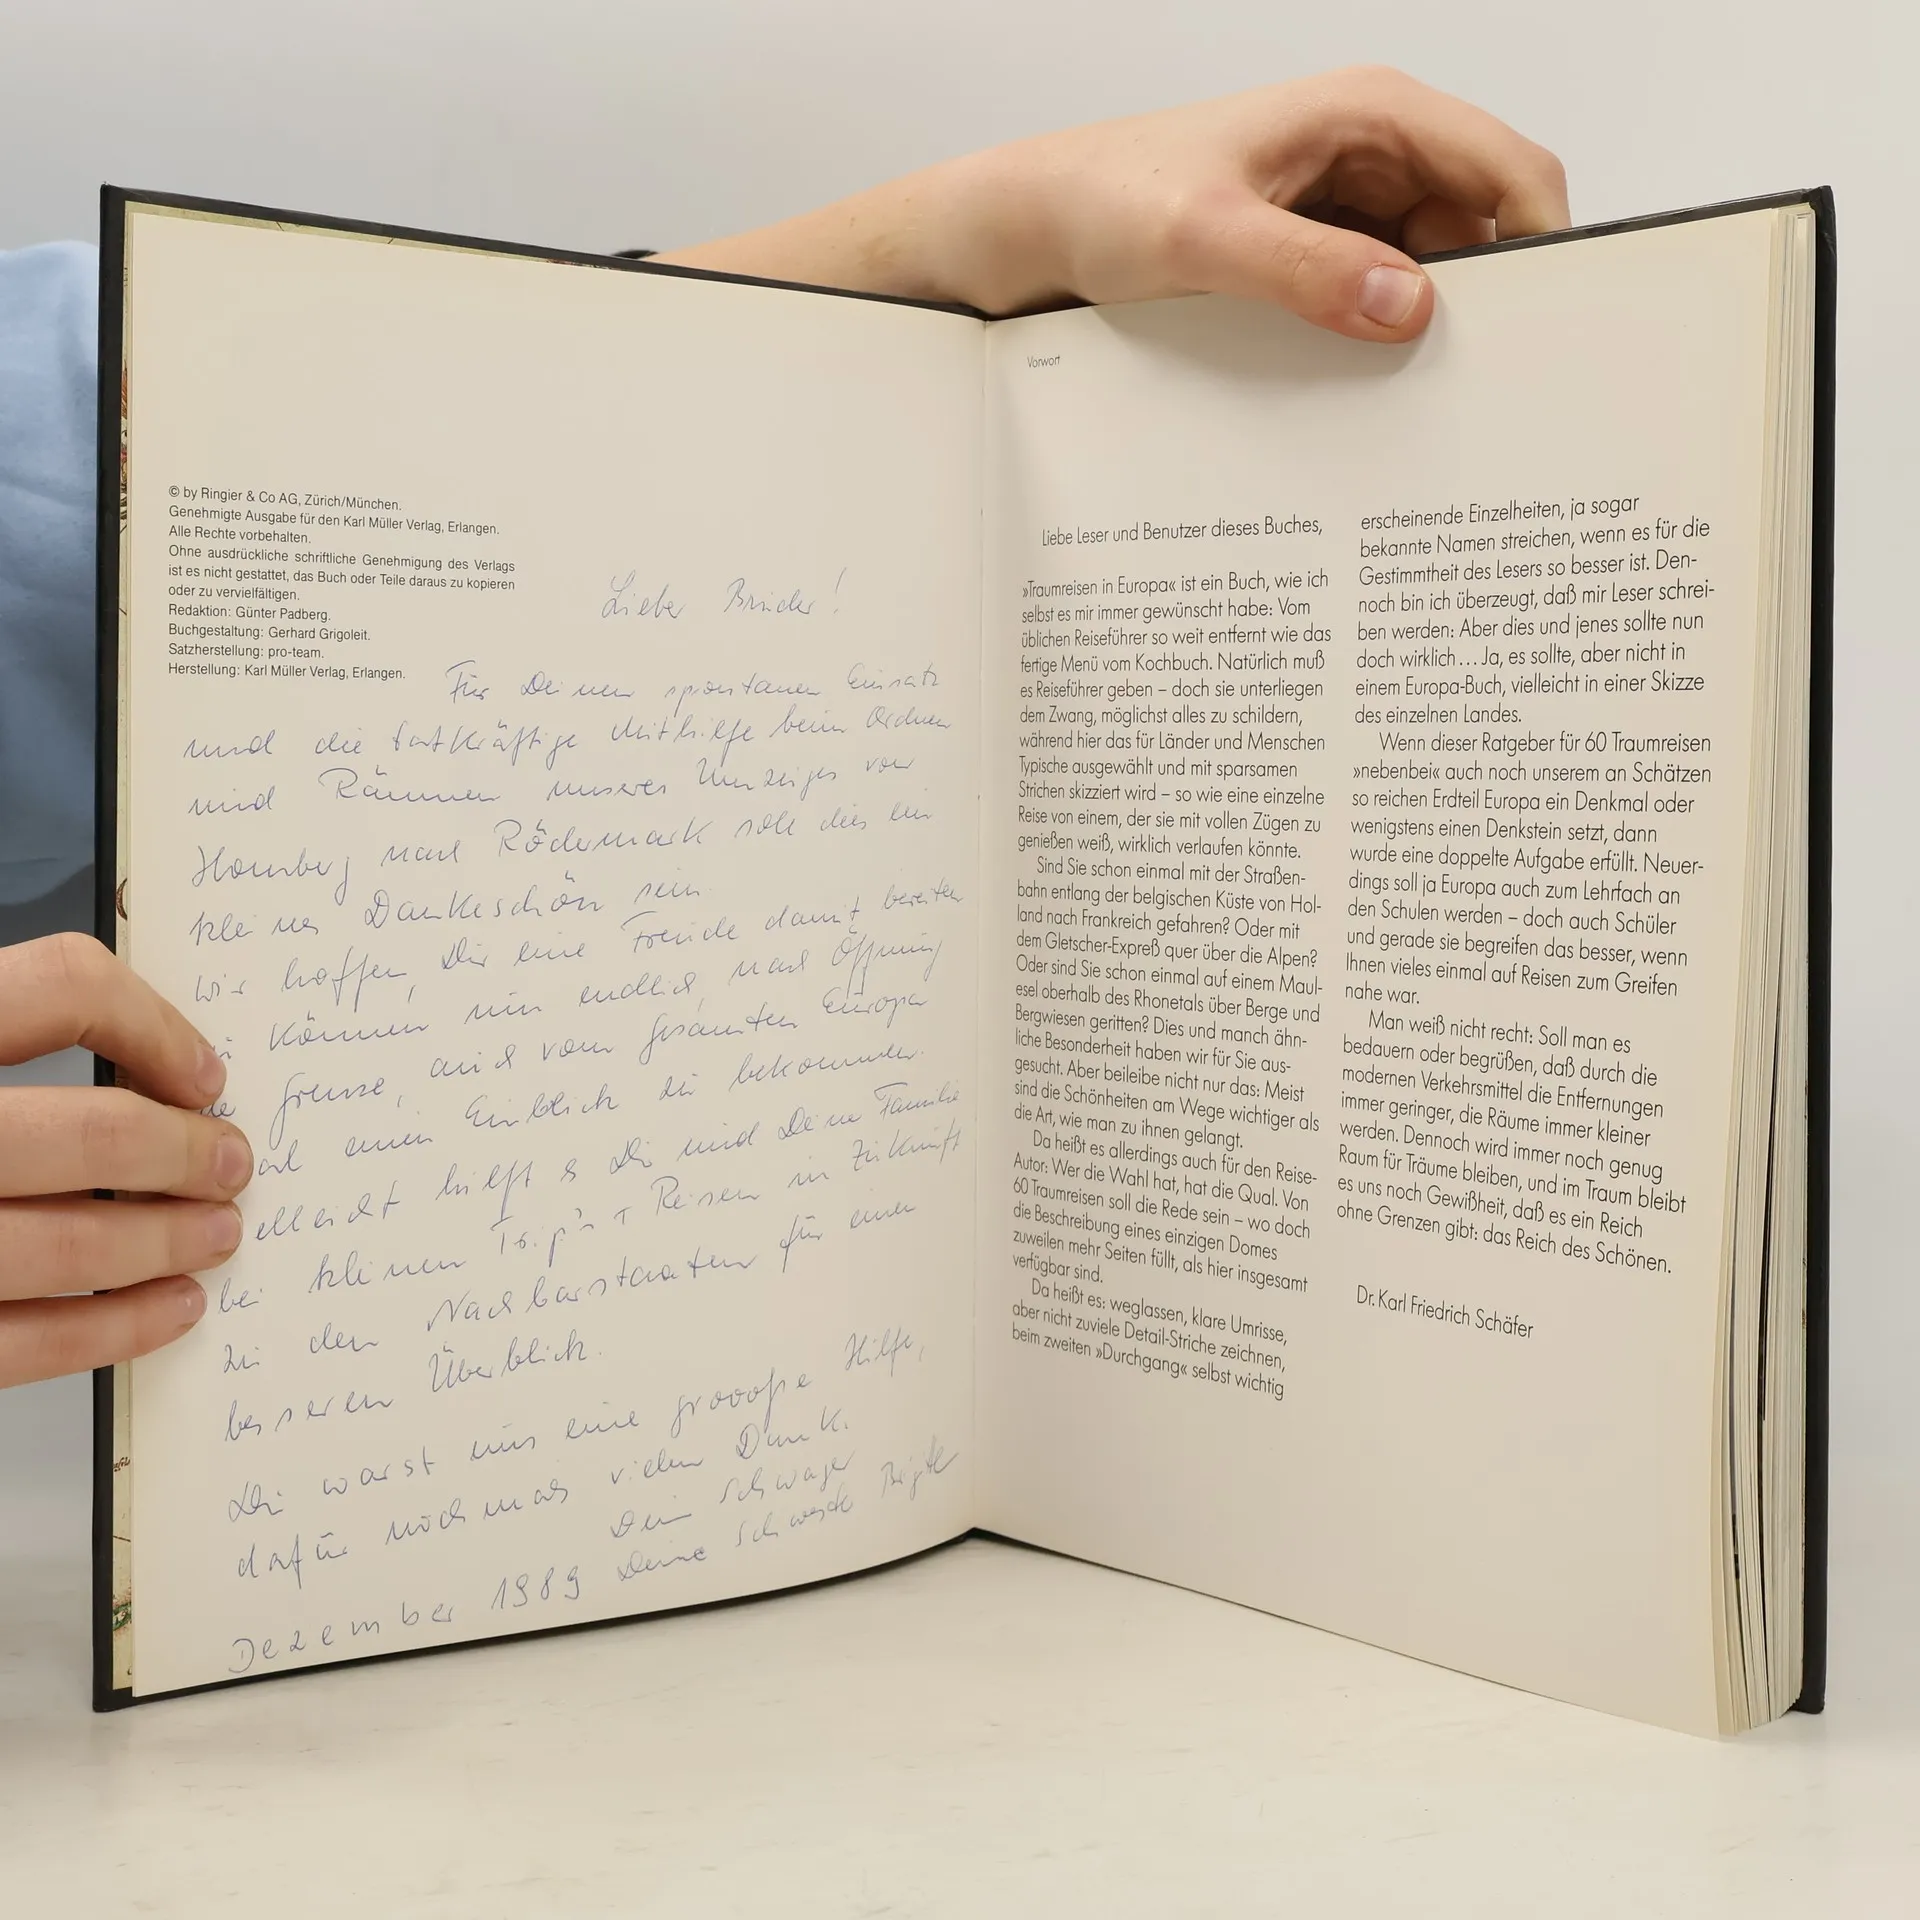 © by Ringier & Co AG, Zürich/München.
Genehmigte Ausgabe für den Karl Müller Verlag, Erlangen.
Alle Rechte vorbehalten.
Ohne ausdrückliche schriftliche Genehmigung des Verlags
ist es nicht gestattet, das Buch oder Teile daraus zu kopieren
oder zu vervielfältigen.
Redaktion: Günter Padberg.
Buchgestaltung: Gerhard Grigoleit.
Satzherstellung: pro-team.
Herstellung: Karl Müller Verlag, Erlangen.
Lieber Bruder!
Für Deinen spontanen Einsatz
und die tatkräftige Mithilfe beim Ordnen
und Räumen unseres Umzuges von
Homberg nach Rödermark soll dies ein
kleines Dankeschön sein.
Wir hoffen, Dir eine Freude damit bereiten
können, nun endlich, nach Öffnung
Grenze, auch vom gesamten Europa
einen Einblick zu bekommen.
hilft es Dir und Deine Familie
bei kleinen Trip's + Reisen in Zukunft
zu den Nachbarstaaten für einen
besseren Überblick.
Du warst uns eine groooße Hilfe,
dafür nochmals vielen Dank.
Dein Schwager
Deine Schwester Brigitte
Dezember 1989
Vorwort
Liebe Leser und Benutzer dieses Buches,
»Traumreisen in Europa« ist ein Buch, wie ich
selbst es mir immer gewünscht habe: Vom
üblichen Reiseführer so weit entfernt wie das
fertige Menü vom Kochbuch. Natürlich muß
es Reiseführer geben – doch sie unterliegen
dem Zwang, möglichst alles zu schildern,
während hier das für Länder und Menschen
Typische ausgewählt und mit sparsamen
Strichen skizziert wird – so wie eine einzelne
Reise von einem, der sie mit vollen Zügen zu
genießen weiß, wirklich verlaufen könnte.
Sind Sie schon einmal mit der Straßen-
bahn entlang der belgischen Küste von Hol-
land nach Frankreich gefahren? Oder mit
dem Gletscher-Expreß quer über die Alpen?
Oder sind Sie schon einmal auf einem Maul-
esel oberhalb des Rhonetals über Berge und
Bergwiesen geritten? Dies und manch ähn-
liche Besonderheit haben wir für Sie aus-
gesucht. Aber beileibe nicht nur das: Meist
sind die Schönheiten am Wege wichtiger als
die Art, wie man zu ihnen gelangt.
Da heißt es allerdings auch für den Reise-
Autor: Wer die Wahl hat, hat die Qual. Von
60 Traumreisen soll die Rede sein – wo doch
die Beschreibung eines einzigen Domes
zuweilen mehr Seiten füllt, als hier insgesamt
verfügbar sind.
Da heißt es: weglassen, klare Umrisse,
aber nicht zuviele Detail-Striche zeichnen,
beim zweiten »Durchgang« selbst wichtig
erscheinende Einzelheiten, ja sogar
bekannte Namen streichen, wenn es für die
Gestimmtheit des Lesers so besser ist. Den-
noch bin ich überzeugt, daß mir Leser schrei-
ben werden: Aber dies und jenes sollte nun
doch wirklich... Ja, es sollte, aber nicht in
einem Europa-Buch, vielleicht in einer Skizze
des einzelnen Landes.
Wenn dieser Ratgeber für 60 Traumreisen
»nebenbei« auch noch unserem an Schätzen
so reichen Erdteil Europa ein Denkmal oder
wenigstens einen Denkstein setzt, dann
wurde eine doppelte Aufgabe erfüllt. Neuer-
dings soll ja Europa auch zum Lehrfach an
den Schulen werden – doch auch Schüler
und gerade sie begreifen das besser, wenn
Ihnen vieles einmal auf Reisen zum Greifen
nahe war.
Man weiß nicht recht: Soll man es
bedauern oder begrüßen, daß durch die
modernen Verkehrsmittel die Entfernungen
immer geringer, die Räume immer kleiner
werden. Dennoch wird immer noch genug
Raum für Träume bleiben, und im Traum bleibt
es uns noch Gewißheit, daß es ein Reich
ohne Grenzen gibt: das Reich des Schönen.
Dr. Karl Friedrich Schäfer